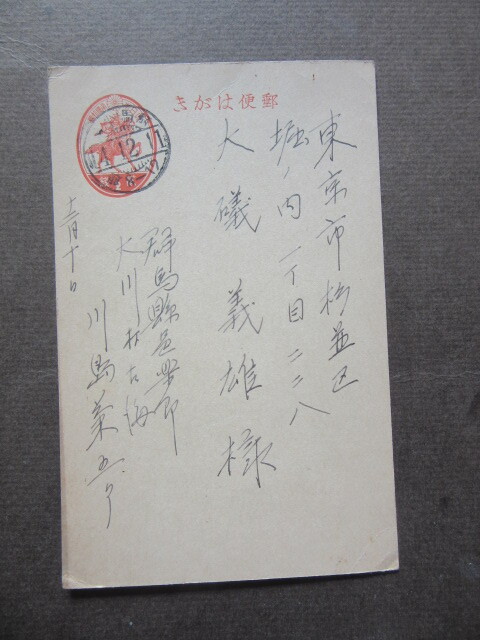 郵便はがき
東京市杉並区
堀ノ内一丁目二二八
大磯義雄様
群馬縣邑楽郡
大川村古海
川島菊
十二月十日